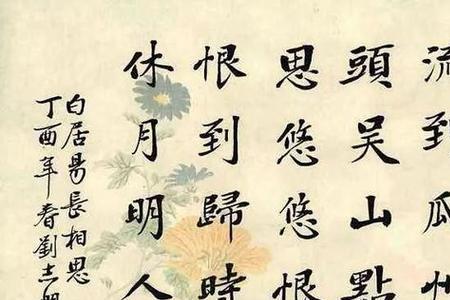 流到瓜州
頭吴山點
思悠悠恨
恨到歸時
休月明人
白居易長相思
丁酉年春劉志